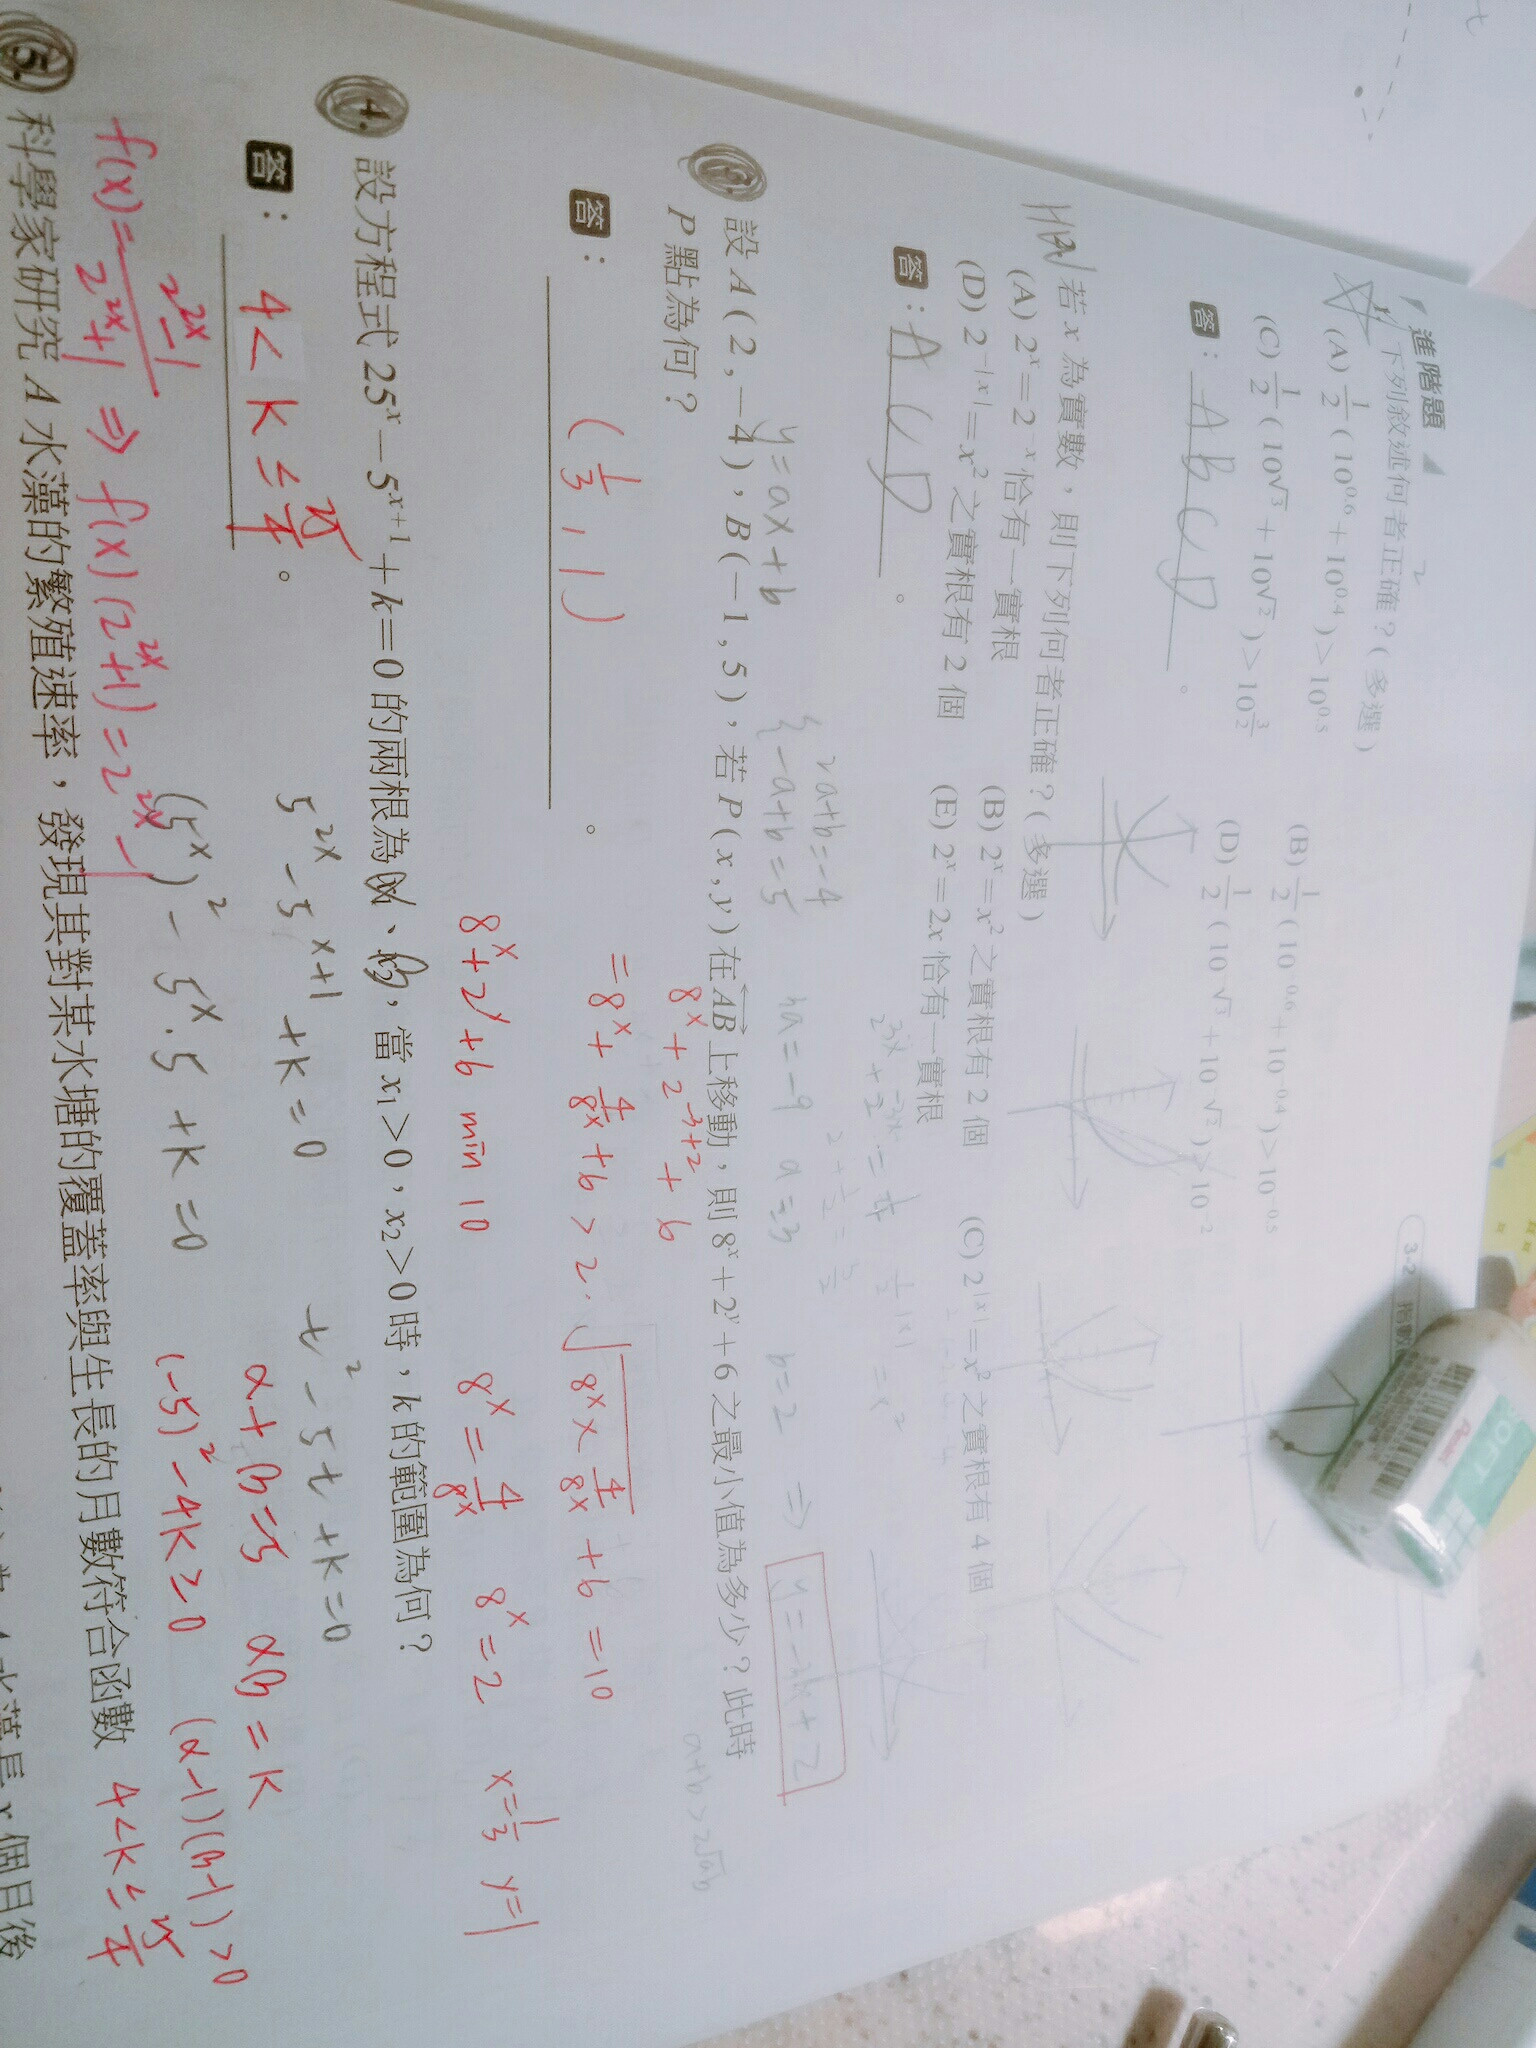 3-2 指數
進階題
下列敘述何者正確？(多選)
(A) 1/2 (10^0.6 + 10^0.4) > 10^0.5
(B) 1/2 (10^-0.6 + 10^-0.4) > 10^-0.5
(C) 1/2 (10^√3 + 10^√2) > 10^(3/2)
答： A B C D 。
若 x 為實數，則下列何者正確？(多選)
(A) 2^x = 2^-x 恰有一實根
(B) 2^x = x² 之實根有 2 個
(C) 2^|x| = x² 之實根有 4 個
(D) 2^-|x| = x² 之實根有 2 個
(E) 2^x = 2x 恰有一實根
答： A C D 。
y = ax + b
{ 2a+b=-4
-a+b=5
b=2 ⇒ y=-3x+2
設 A(2, -4)，B(-1, 5)，若 P(x, y) 在 AB 上移動，則 8^x + 2^y + 6 之最小值為多少？此時
P 點為何？
8^x + 2^-3+2 + 6
= 8^x + 4/8^x + 6 > 2·√(8^x × 4/8^x) + 6 = 10
答： (1/3, 1) 。
8^x + 2^y + 6 min 10
8^x = 4/8^x
8^x = 2
x=1/3 y=1
4. 設方程式 25^x - 5^(x+1) + k = 0 的兩根為 α、β，當 x₁ > 0，x₂ > 0 時，k 的範圍為何？
5^2x - 5^x+1 + k = 0
t² - 5t + k = 0
答： 4 < k ≤ 25/4 。
α+β=5 αβ=k
(5^x)² - 5^x · 5 + k = 0
(-5)² - 4k ≥ 0 (α-1)(β-1) > 0
4<k≤25/4
f(x) = (2^2x - 1)/(2^2x + 1) ⇒ f(x)(2^2x+1) = 2^2x - 1
5. 科學家研究 A 水藻的繁殖速率，發現其對某水塘的覆蓋率與生長的月數符合函數
個月後